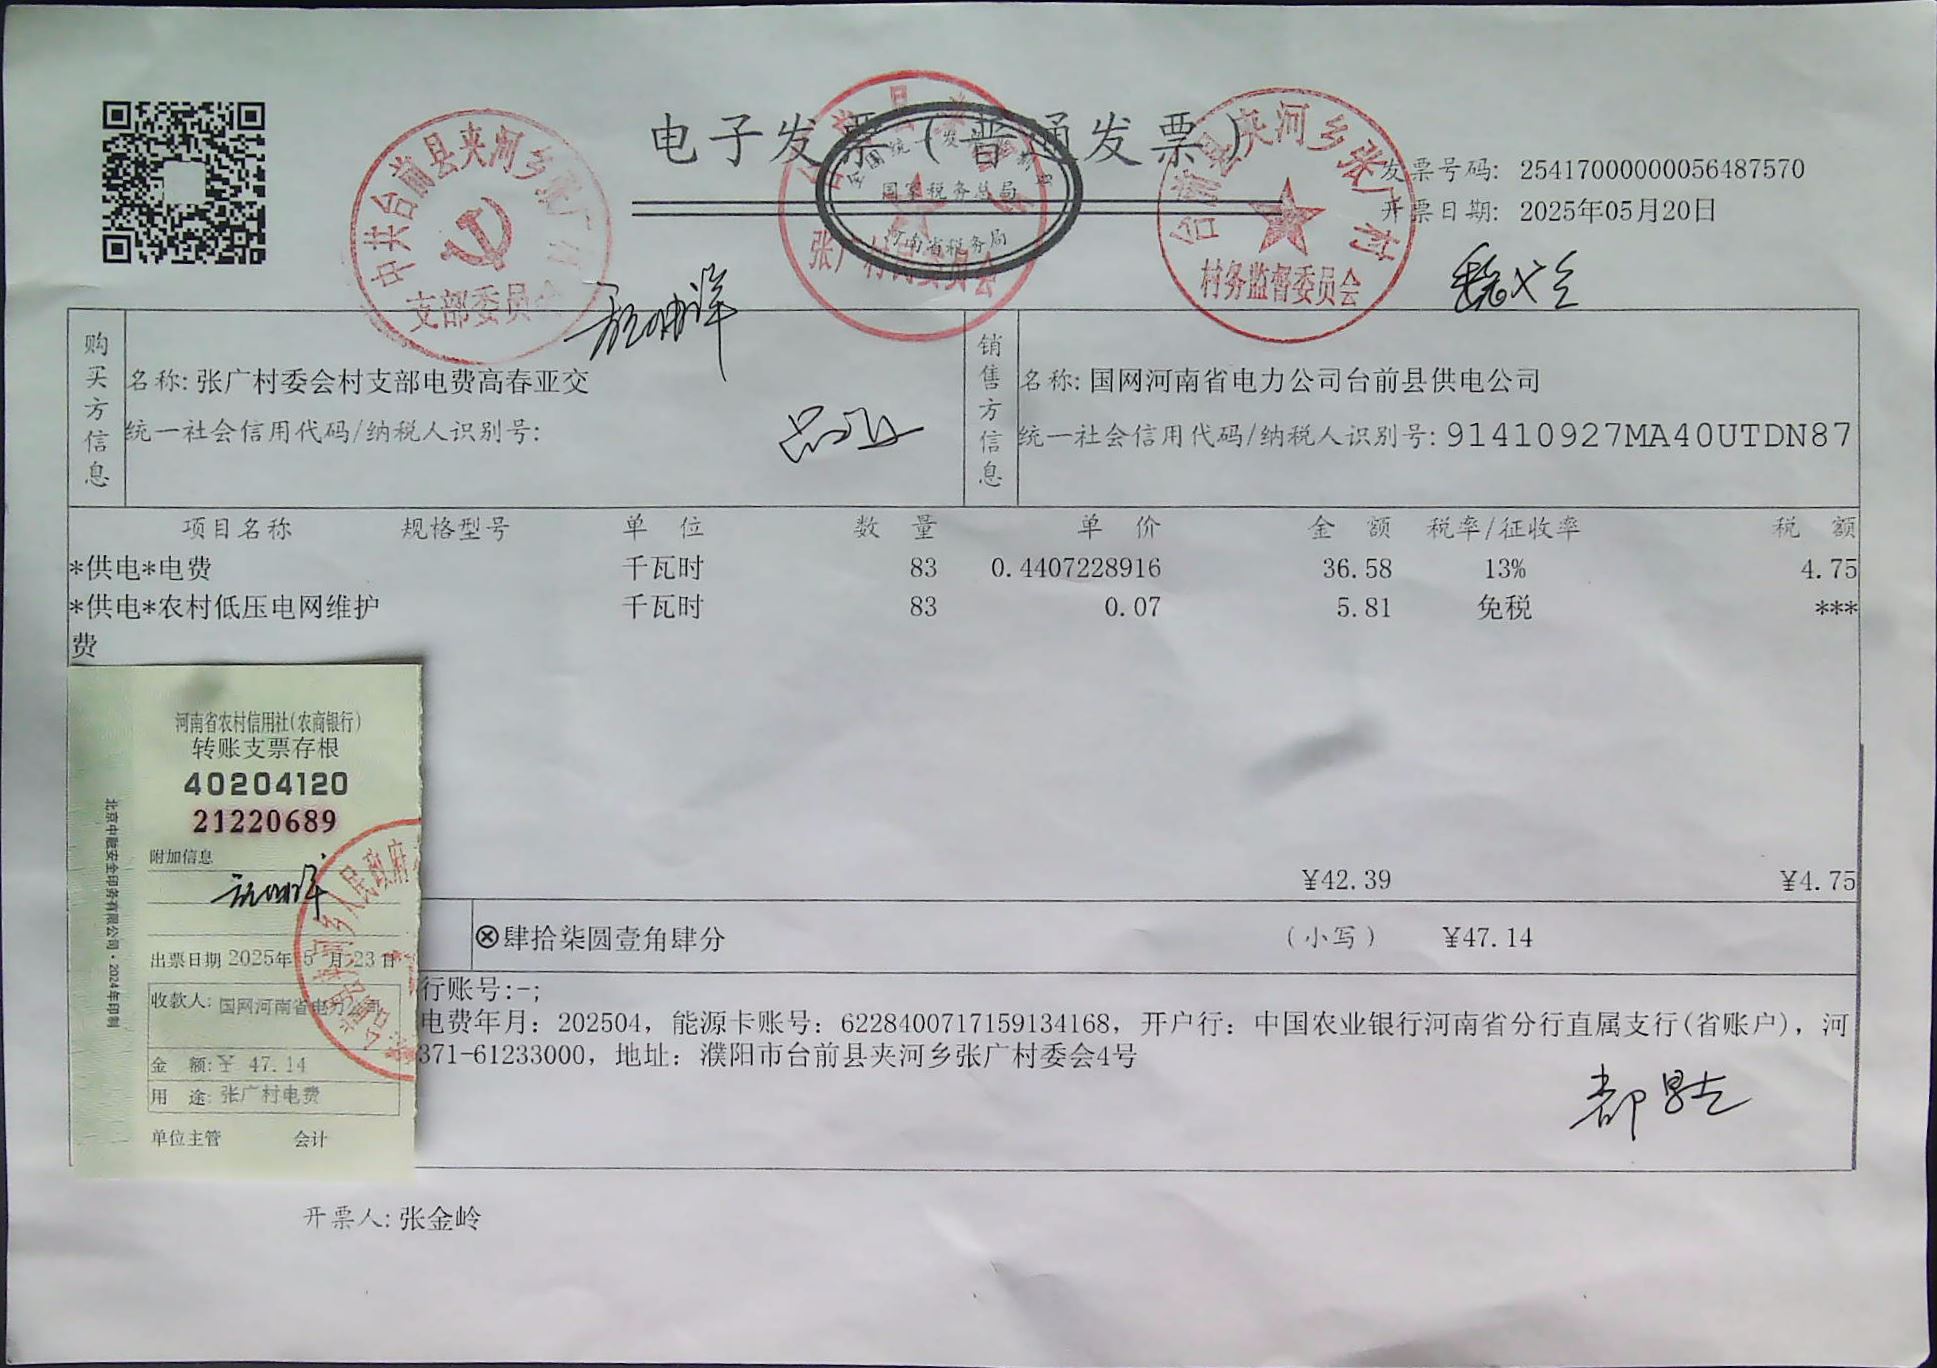 电子发票（普通发票）
全国统一发票监制章
国家税务总局
河南省税务局
中共台前县夹河乡张广村
支部委员会
张广村村民委员会
台前县夹河乡张广村
村务监督委员会
发票号码: 25417000000056487570
开票日期: 2025年05月20日
购买方信息
名称: 张广村委会村支部电费高春亚交
统一社会信用代码/纳税人识别号:
销售方信息
名称: 国网河南省电力公司台前县供电公司
统一社会信用代码/纳税人识别号: 91410927MA40UTDN87
项目名称 规格型号 单位 数量 单价 金额 税率/征收率 税额
*供电*电费 千瓦时 83 0.4407228916 36.58 13% 4.75
*供电*农村低压电网维护 千瓦时 83 0.07 5.81 免税 ***
费
¥42.39 ¥4.75
ⓧ肆拾柒圆壹角肆分 （小写） ¥47.14
行账号:-;
电费年月：202504，能源卡账号：6228400717159134168，开户行：中国农业银行河南省分行直属支行(省账户)，河
371-61233000，地址：濮阳市台前县夹河乡张广村委会4号
河南省农村信用社(农商银行)
转账支票存根
40204120
21220689
附加信息
出票日期 2025年5月23日
收款人: 国网河南省电力公司
金 额:¥ 47.14
用 途: 张广村电费
单位主管 会计
北京中融安全印务有限公司·2024年印制
开票人: 张金岭